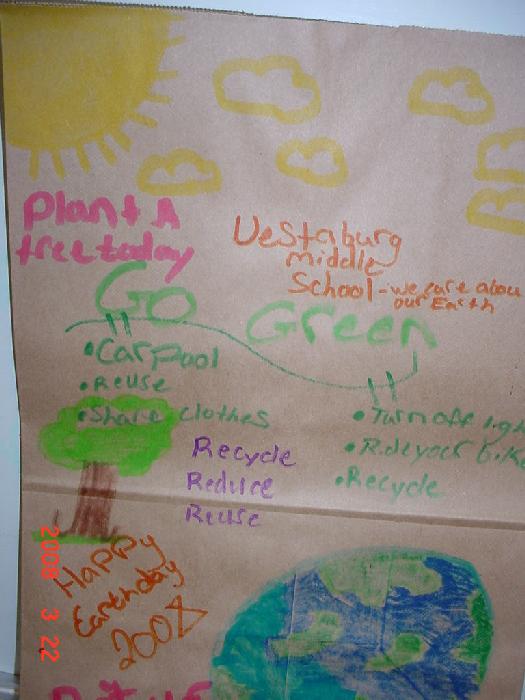 Plant A
tree today
Vestaburg
middle
School - we care
our Earth
Go
Green
• Carpool
• Reuse
• Share clothes
• Turn off
• Ride your
• Recycle
Recycle
Reduce
Reuse
Happy
Earthday
2008
2008 3 22